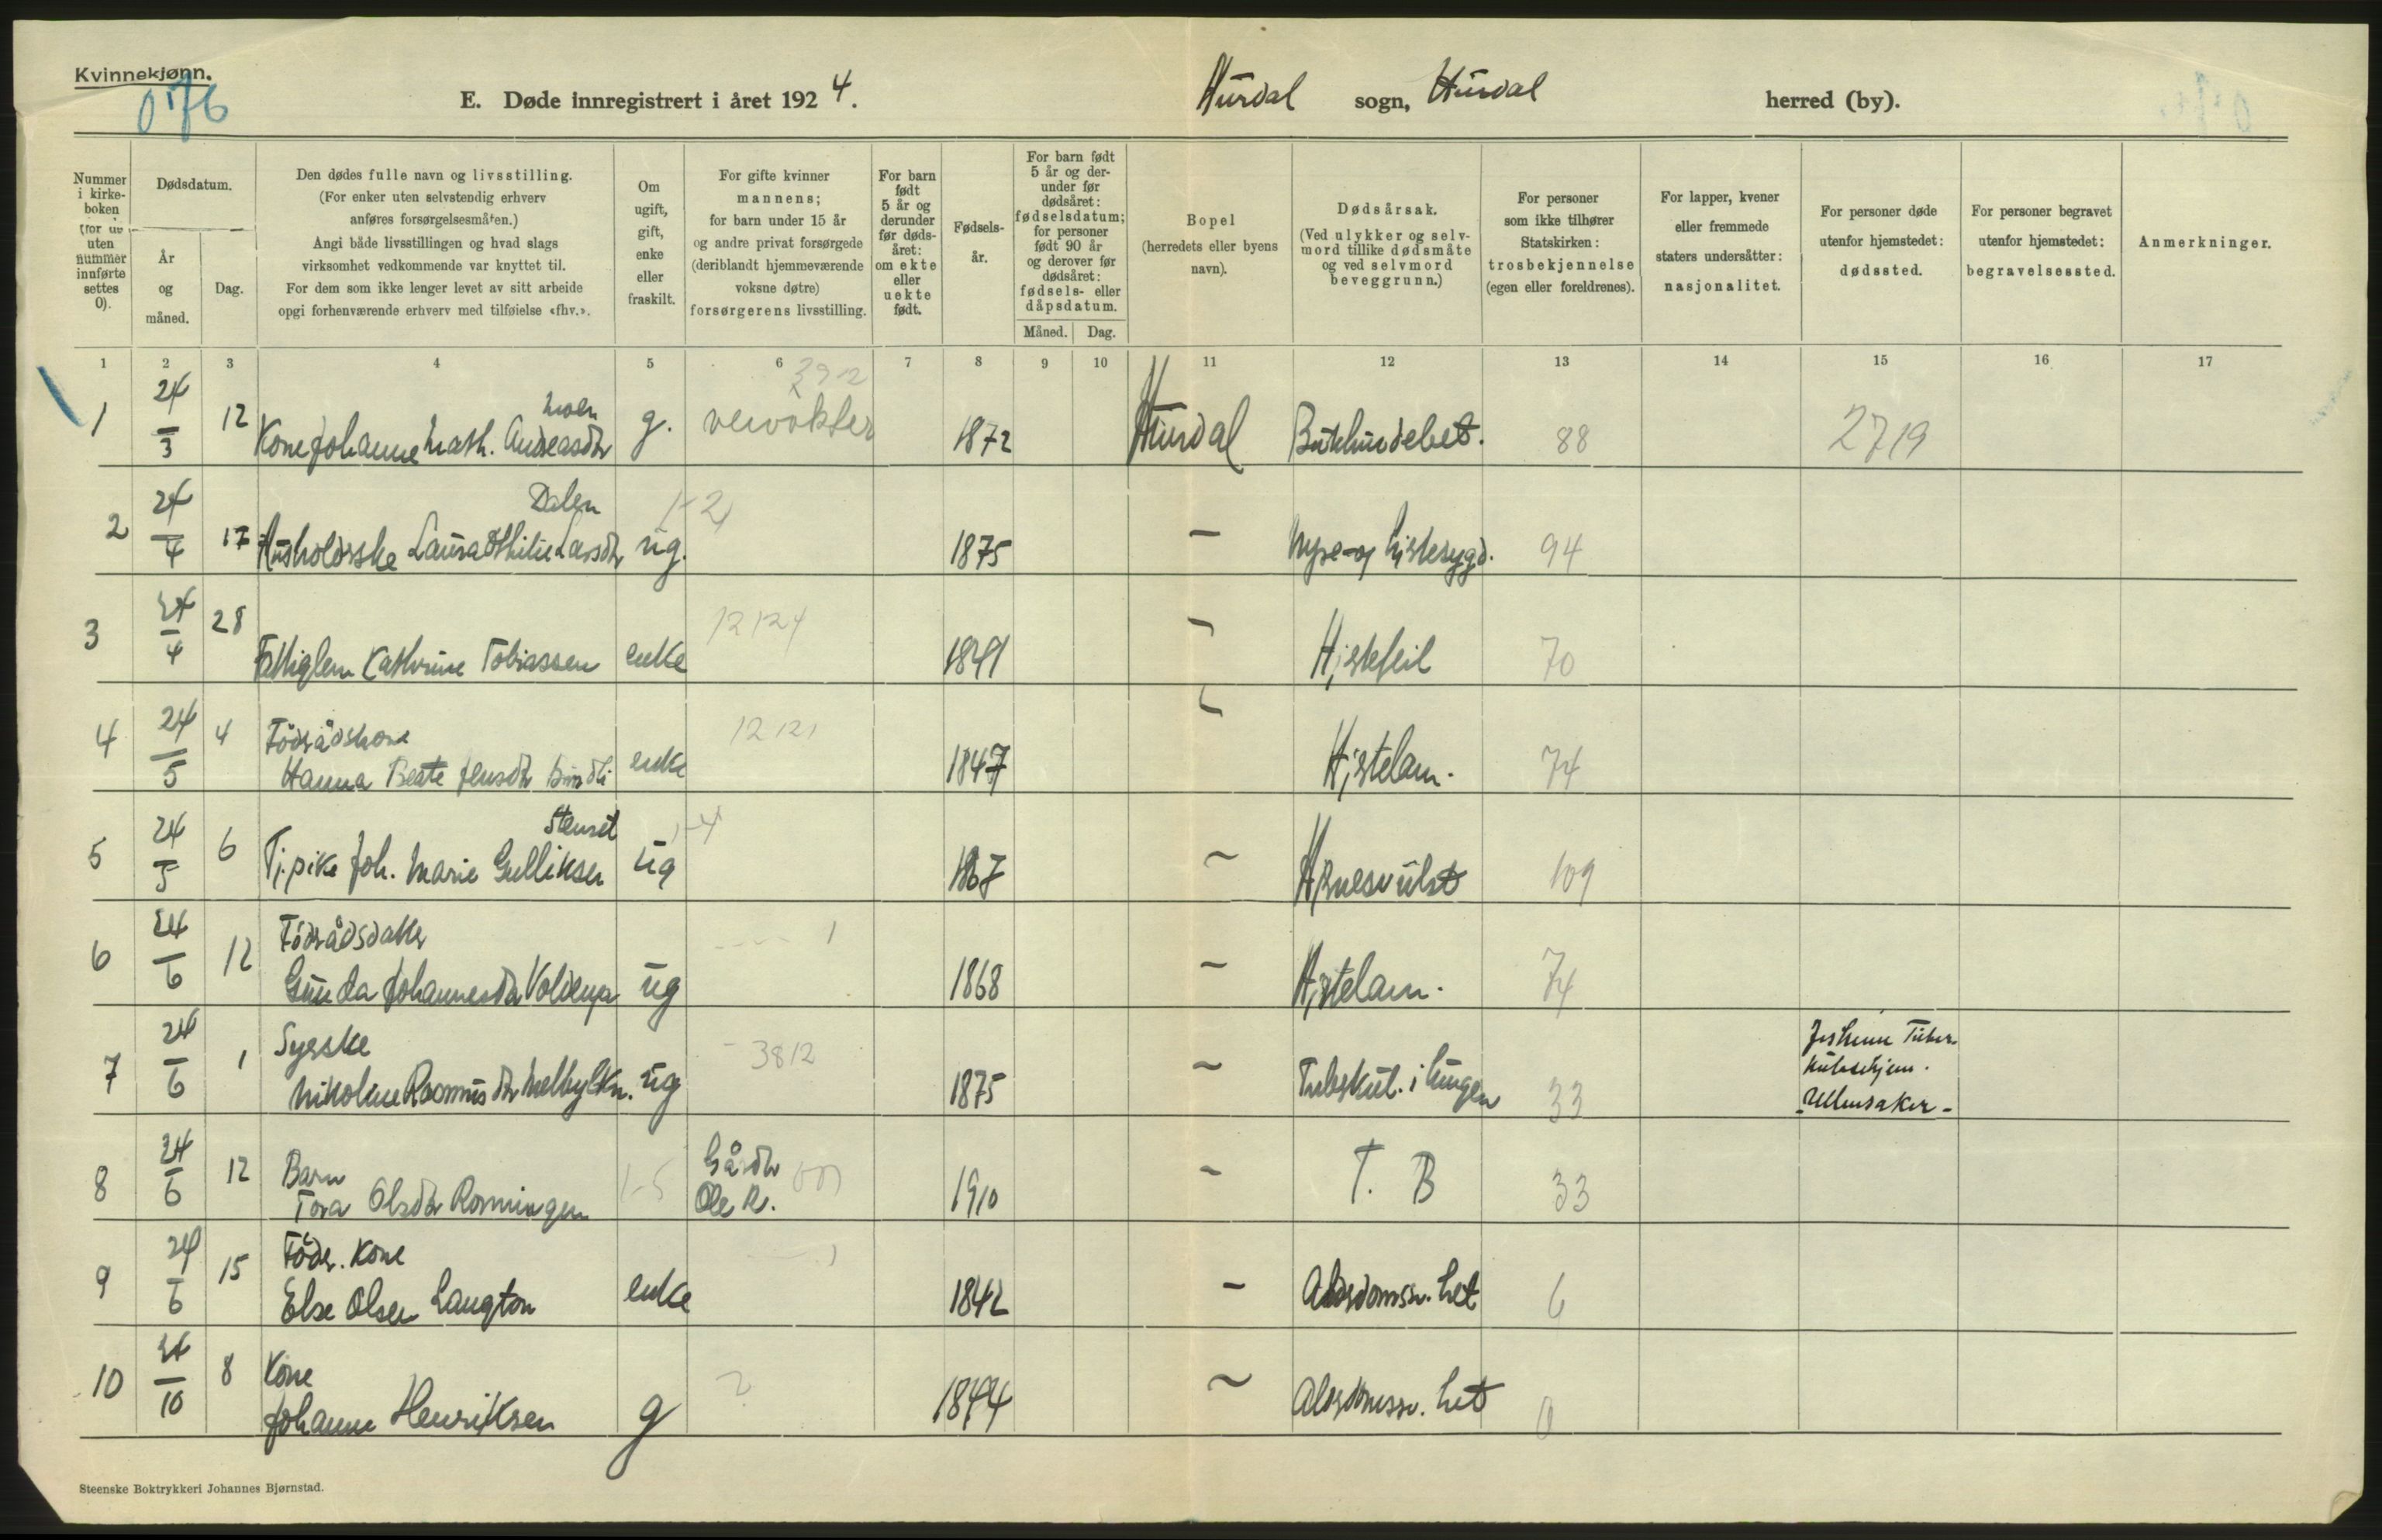 Kvinnekjønn.
0176
E. Døde innregistrert i året 1924.
Hurdal sogn, Hurdal herred (by).
Nummer i kirke-boken (for uten nummer innførte settes 0).
Dødsdatum.
År og måned.
Dag.
Den dødes fulle navn og livsstilling.
(For enker uten selvstendig erhverv anføres forsørgelsesmåten.)
Angi både livsstillingen og hvad slags virksomhet vedkommende var knyttet til.
For dem som ikke lenger levet av sitt arbeide opgi forhenværende erhverv med tilføielse «fhv.».
Om ugift, gift, enke eller fraskilt.
For gifte kvinner mannens; for barn under 15 år og andre privat forsørgede (deriblandt hjemmeværende voksne døtre) forsørgerens livsstilling.
For barn født 5 år og derunder før døds-året: om ekte eller uekte født.
Fødsels-år.
For barn født 5 år og der-under før dødsåret: fødselsdatum; for personer født 90 år og derover før dødsåret: fødsels- eller dåpsdatum.
Måned. Dag.
Bopel (herredets eller byens navn).
Dødsårsak.
(Ved ulykker og selv-mord tillike dødsmåte og ved selvmord beveggrunn.)
For personer som ikke tilhører Statskirken: trosbekjennelse (egen eller foreldrenes).
For lapper, kvener eller fremmede staters undersåtter: nasjonalitet.
For personer døde utenfor hjemstedet: dødssted.
For personer begravet utenfor hjemstedet: begravelsessted.
Anmerkninger.
1 2 3 4 5 6 7 8 9 10 11 12 13 14 15 16 17
1 24/3 12 Kone Johanne Math. Andreasdtr g. veivokter 1872 Hurdal 88 2719
Dalen
2 24/4 17 Husholderske Laura Othilie Larsdtr ug. 1-2 1875 - Nyre- og hjertesygd. 94
3 24/4 28 Kathrine Tobiassen enke 12124 1841 - Hjertefeil 70
4 24/5 4 Föderådskone
Hanna Beate Jensdtr enke 12121 1847 - Hjertelam. 74
Stenset
5 24/5 6 Tj.pike Joh. Marie Gulliksen ug 1-4 1867 - Hjernesvulst 109
6 24/6 12 Föderådsdatter
Gunda Johannesdtr ug 1 1868 - Hjertelam. 74
7 24/6 1 Syerske
Nikoline Rasmusdtr ug - 3812 1875 - Tuberkul. i lungen 33
Jessheim Tuber-
kulosehjem.
- Ullensaker -
8 24/6 12 Barn
Tora Olsdtr Rosmingen 1-5 Gårdbr Ole R. 1910 - T. B 33
9 24/6 15 Föder. Kone
Else Olsen Laugton enke 1 1842 - Alderdomssv.het 6
10 24/10 8 Kone
Johanne Henriksen g ? 1844 - Alderdomssv.het 0
Steenske Boktrykkeri Johannes Bjørnstad.